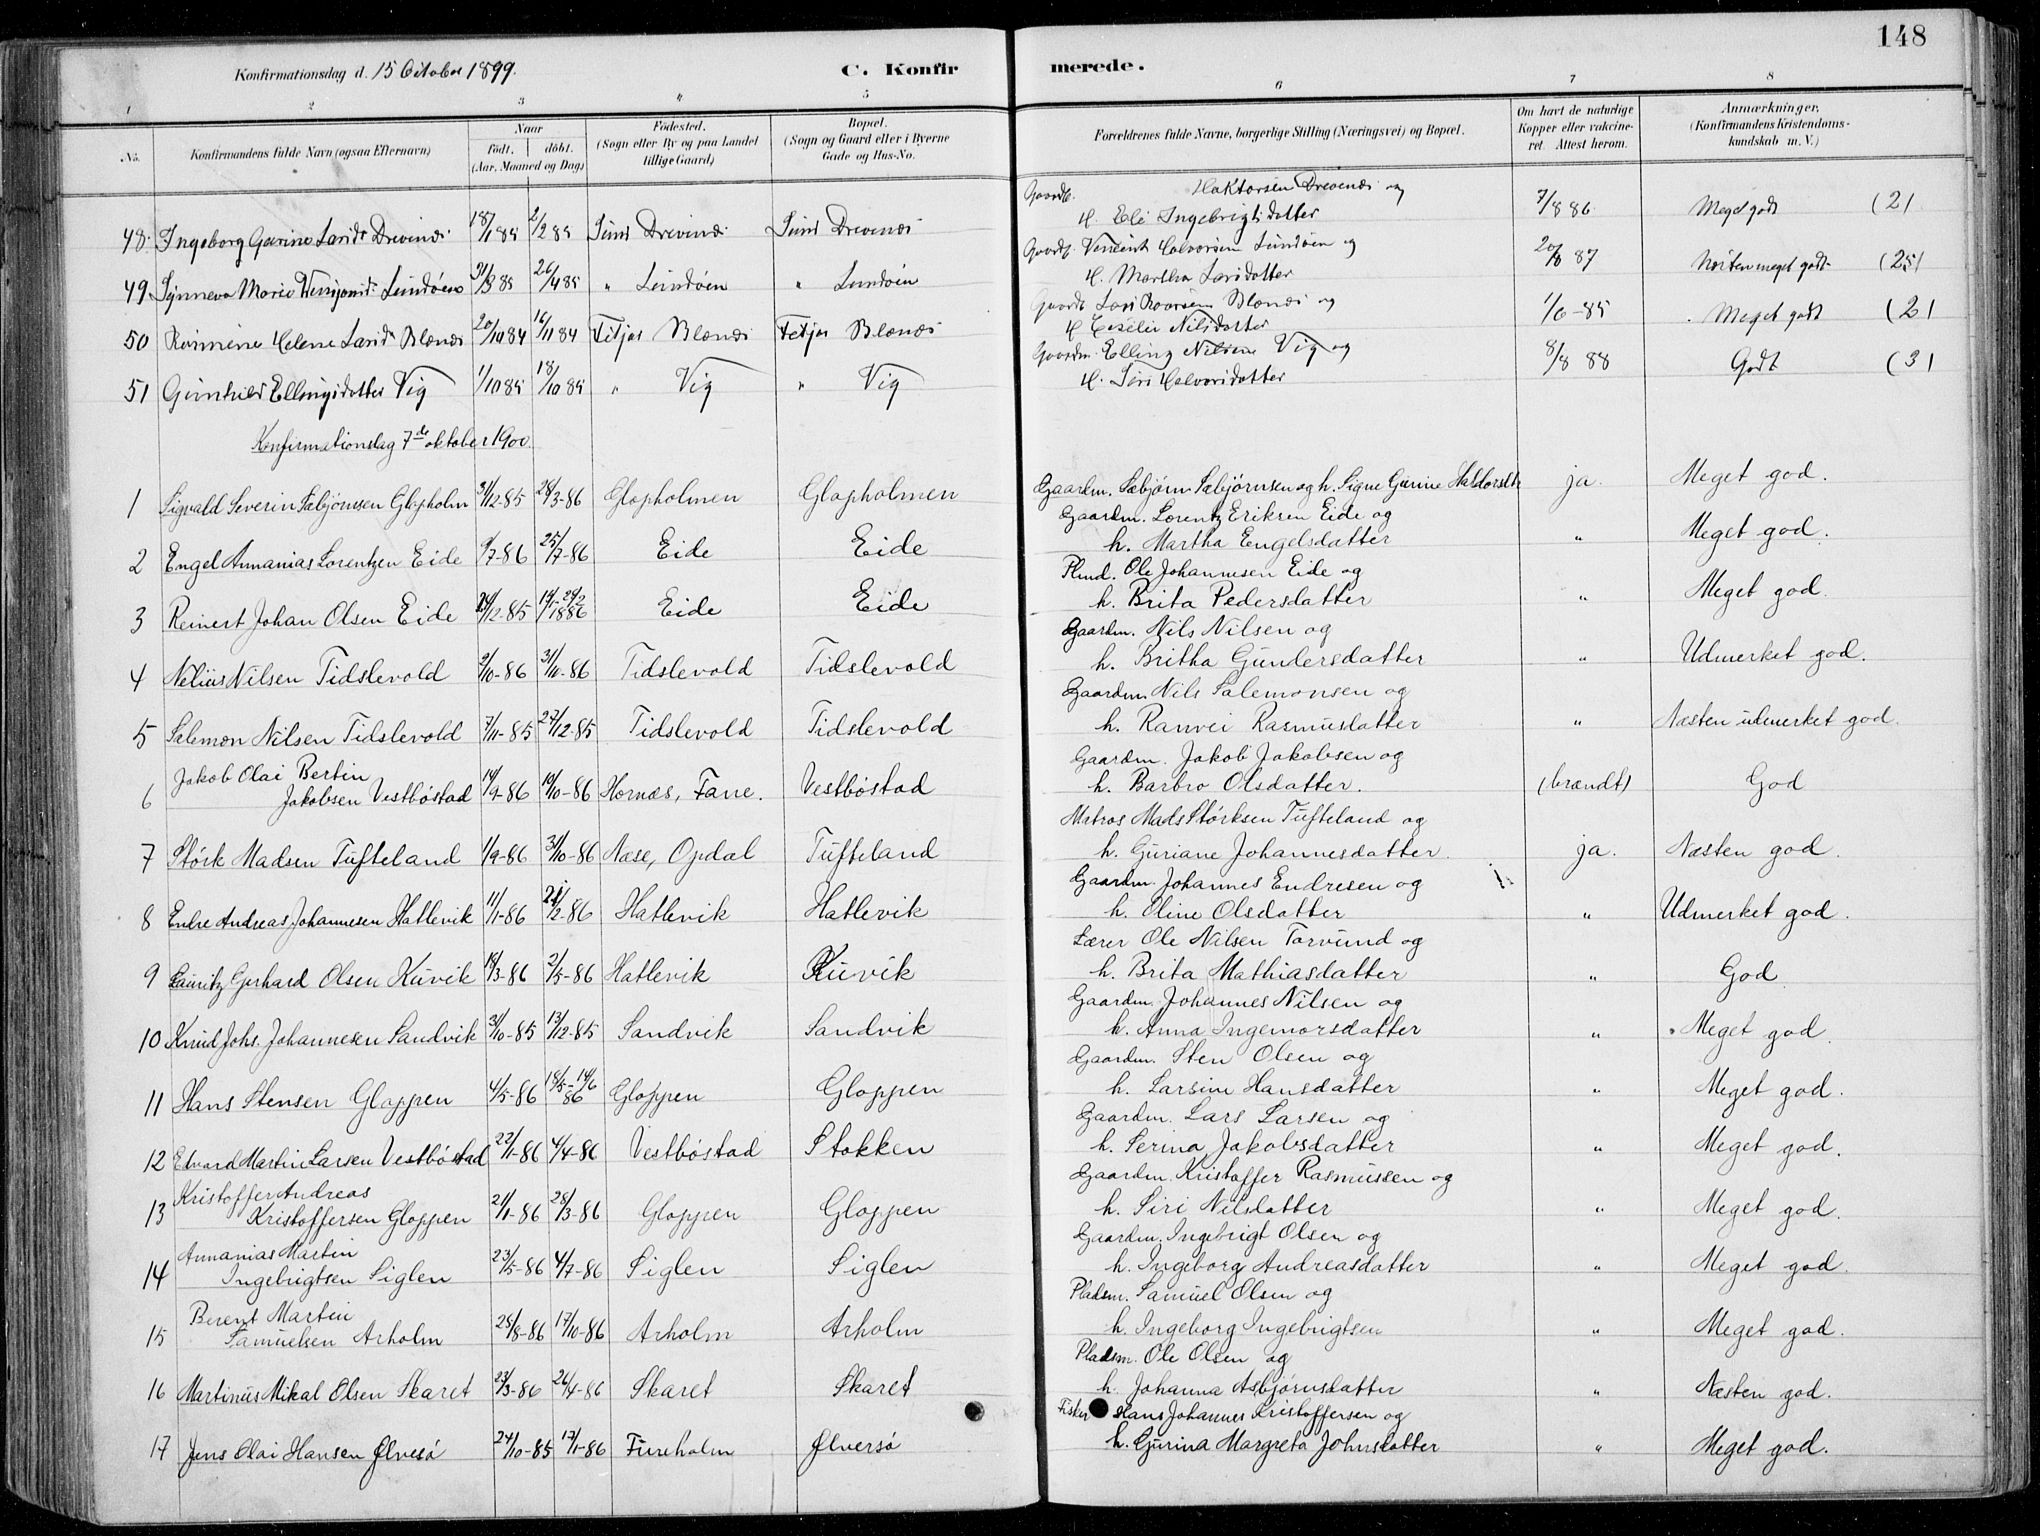 148
Konfirmationsdag d. 15 October 1899.
C. Konfirmerede.
1 2 3 4 5 6 7 8
No.
Konfirmandens fulde Navn (ogsaa Efternavn)
Naar født. døbt. (Aar, Maaned og Dag)
Fødested. (Sogn eller By og paa Landet tillige Gaard)
Bopæl. (Sogn og Gaard eller i Byerne Gade og Hus-No.
Forældrenes fulde Navne, borgerlige Stilling (Næringsvei) og Bopæl.
Om havt de naturlige Kopper eller vakcineret. Attest herom.
Anmærkninger. (Konfirmandens Kristendomskundskab m. V.)
48. Ingeborg Gurine Larsdr Drevinæs 18/1 85 2/2 85 Sund Drevinæs Sund Drevenæs Gaardb. Haktorsen Drevenæs og H. Eli Ingebrigtsdatter 7/8 86 Meget godt (2)
49 Synneva Marie Lundøen 31/3 85 26/4 85 " Lundøen " Lundøen Gaardb. Halvorsen Lundøen og H. Martha Larsdatter 20/8 87 Næsten meget godt (2,5)
50 Helene Larsdr Blænes 20/10 84 16/11 84 Fitjar Blænæs Fitjar Blænæs Gaardb. Lars Blænes og H. Nilsdatter 1/6-85 Meget godt (2)
51 Gunhild Ellingsdatter Vig 1/10 85 18/10 85 " Vig " Vig Gaardm. Elling Nilsen Vig og H. Siri Halvorsdatter 8/8 88 Godt (3)
Konfirmationsdag 7de oktober 1900.
1 Sigvald Severin Sæbjørnsen Glopholm 31/12-85 28/3-86 Glopholmen Glopholmen Gaardm. Sæbjørn Sæbjørnsen og h. Signe Gurine Haldorsdtr ja. Meget god.
2 Engel Annanias Lorentzen Eide 9/7-86 25/7-86 Eide Eide Gaardm. Lorentz Eriksen Eide og h. Martha Engelsdatter " Meget god.
3 Reinert Johan Olsen Eide 24/12-85 14/1-24/2 1886 Eide Eide Plmd. Ole Johannesen Eide og h. Brita Pedersdatter " Meget god.
4 Nelius Nilsen Tidslevold 2/10-86 31/10-86 Tidslevold Tidslevold Gaardm. Nils Nilsen og h. Britha Gundersdatter " Udmerket god.
5 Salemon Nilsen Tidslevold 7/11-85 27/12-85 Tidslevold Tidslevold Gaardm. Nils Salemonsen og h. Ranvei Rasmusdatter " Næsten udmerket god.
6 Jakob Olai Bertin Jakobsen Vestbøstad 14/9-86 10/10-86 Hornæs, Fane. Vestbøstad Gaardm. Jakob Jakobsen og h. Barbro Olsdatter. (brændt) God
7 Størk Madsen Tufteland 1/9-86 31/10-86 Næse, Opdal Tufteland Matros Mads Størksen Tufteland og h. Guriane Johannesdatter. ja. Næsten god.
8 Endre Andreas Johannesen Hatlevik 11/1-86 21/2-86 Hatlevik Hatlevik Gaardm. Johannes Endresen og h. Oline Olsdatter " Udmerket god.
9 Lauritz Gerhard Olsen Kuvik 18/3-86 2/5-86 Hatlevik Kuvik Lærer Ole Nilsen Torvund og h. Brita Mathiasdatter " God
10 Knud Johs. Johannesen Sandvik 31/10-85 13/12-85 Sandvik Sandvik Gaardm. Johannes Nilsen og h. Anna Ingemorsdatter " Meget god.
11 Hans Stensen Gloppen 4/5-86 18/5-14/6 86 Gloppen Gloppen Gaardm. Sten Olsen og h. Larsine Hansdatter " Meget god.
12 Edvard Martin Larsen Vestbøstad 22/1-86 4/4-86 Vestbøstad Stokken Gaardm. Lars Larsen og h. Serina Jakobsdatter " Meget god.
13 Kristoffer Andreas Kristoffersen Gloppen 21/1-86 28/3-86 Gloppen Gloppen Gaardm. Kristoffer Rasmussen og h. Siri Nilsdatter " Meget god.
14 Annanias Martin Ingebrigtsen Siglen 23/5-86 4/7-86 Siglen Siglen Gaardm. Ingebrigt Olsen og h. Ingeborg Andreasdatter " Meget god.
15 Berent Martin Samuelsen Arholm 25/8-86 17/10-86 Arholm Arholm Pladsm. Samuel Olsen og h. Ingeborg Ingebrigtsen " Meget god.
16 Martinus Mikal Olsen Skaret 23/3-86 26/4-86 Skaret Skaret Pladsm. Ole Olsen og h. Johanna Asbjørnsdatter " Næsten god.
17 Jens Olai Hansen Ølvesø 24/10-85 17/1-86 Fureholm Ølversø Fisker Hans Johannes Kristoffersen og h. Gurina Margreta Johnsdatter " Meget god.